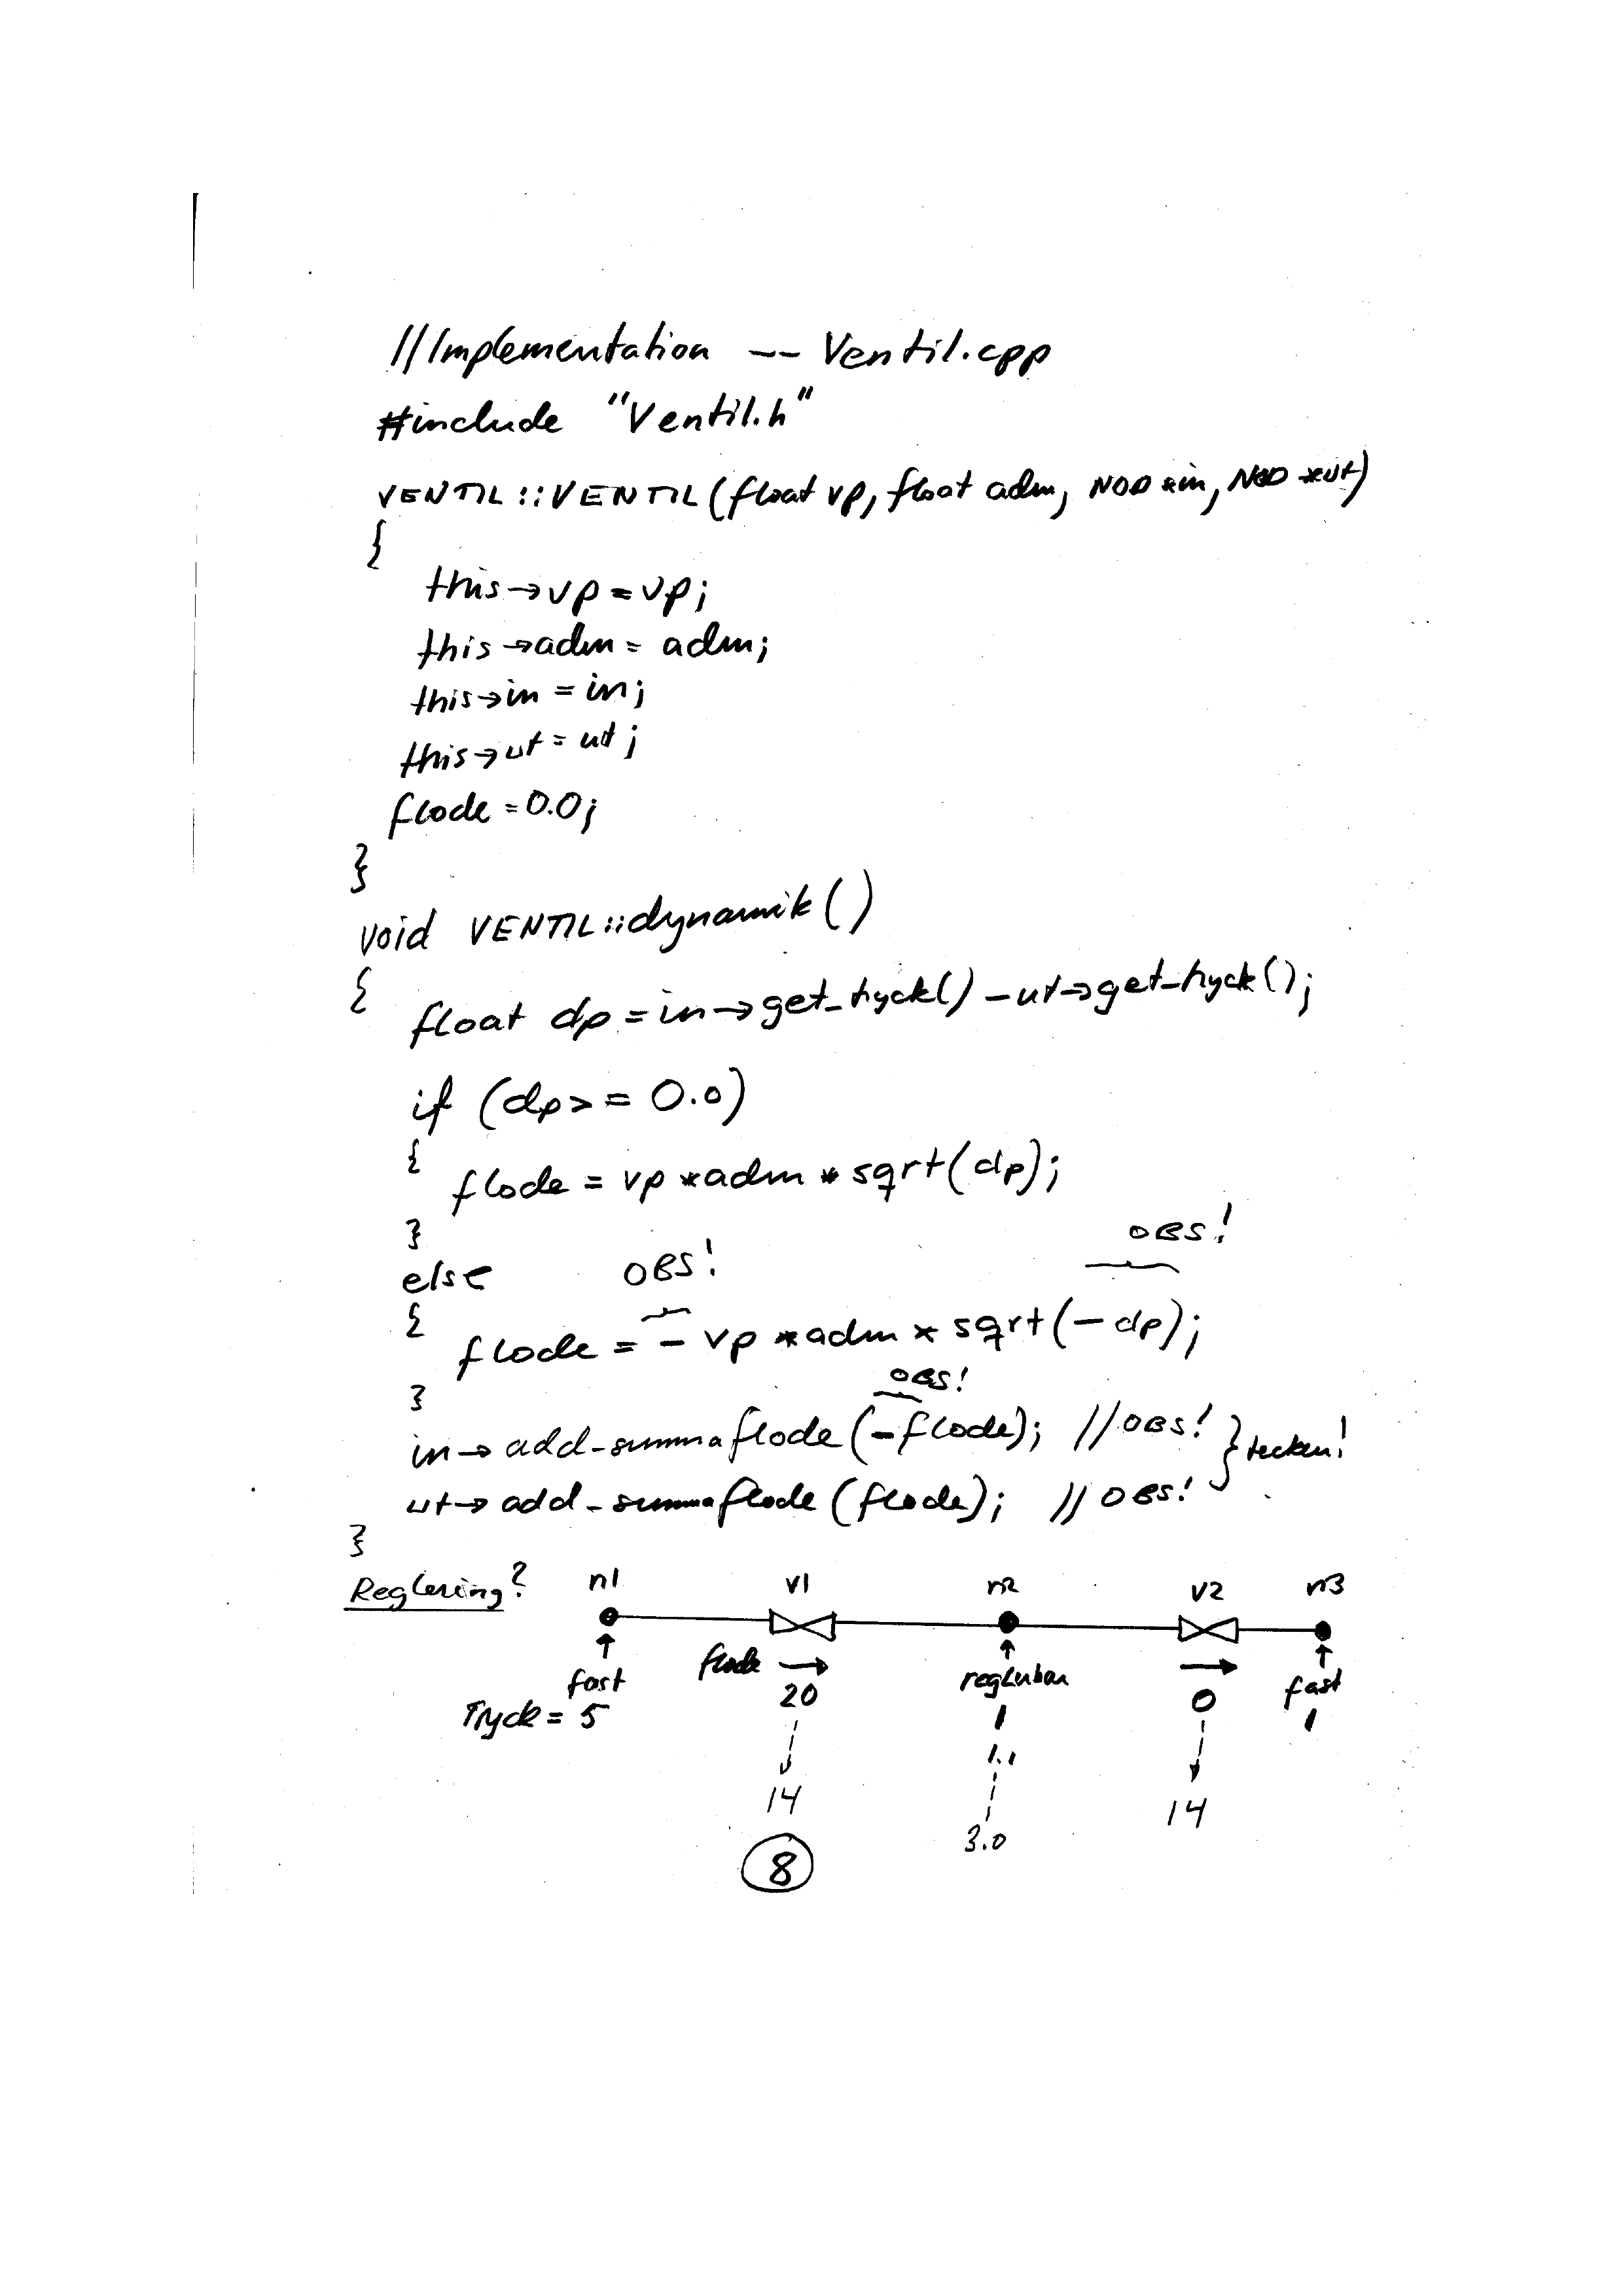 //Implementation -- Ventil.cpp
#include "Ventil.h"
VENTIL::VENTIL(float vp, float adm, NOD *in, NOD *ut)
{
this->vp = vp;
this->adm = adm;
this->in = in;
this->ut = ut;
flode = 0.0;
}
void VENTIL::dynamik()
{
float dp = in->get_tryck() - ut->get_tryck();
if (dp >= 0.0)
{
flode = vp * adm * sqrt(dp);
}
OBS!
else OBS!
{
flode = - vp * adm * sqrt(-dp);
}
OBS!
in->add_summaflode(-flode); //OBS! } tecken!
ut->add_summaflode(flode); //OBS!
}
Reglering? n1 v1 n2 v2 n3
fast flode → reglerbar → fast
Tryck = 5 20 1 0 1
1.1
14 3.0 14
8